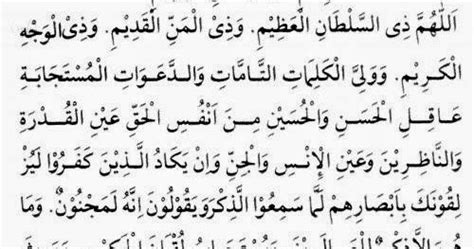 اَللّٰهُمَّ ذِى السُّلْطَانِ الْعَظِيْمِ. وَذِى الْمَنِّ الْقَدِيْمِ. وَذِى الْوَجْهِ
الْكَرِيْمِ. وَوَلِيِّ الْكَلِمَاتِ التَّامَّاتِ وَالدَّعَوَاتِ الْمُسْتَجَابَةِ
عَاقِلِ الْحَسَنِ وَالْحُسَيْنِ مِنْ اَنْفُسِ الْحَقِّ عَيْنِ الْقُدْرَةِ
وَالنَّاظِرِيْنَ وَعَيْنِ الْاِنْسِ وَالْجِنِّ وَاِنْ يَكَادُ الَّذِيْنَ كَفَرُوْا لَيُزْ
لِقُوْنَكَ بِاَبْصَارِهِمْ لَمَّا سَمِعُوا الذِّكْرَ وَيَقُوْلُوْنَ اِنَّهُ لَمَجْنُوْنٌ. وَمَا